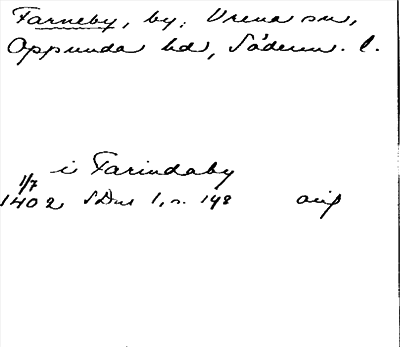 Farneby, by, Vrena sn,
Oppunda hd, Söderm. l.
i Farindaby
1/7
1402 SDns 1, s. 148 avs